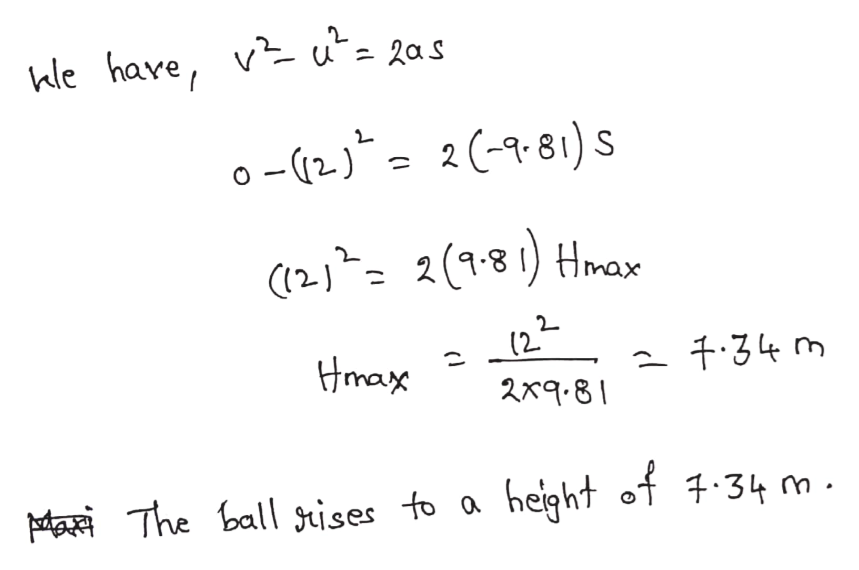 We have, v² - u² = 2as
0 - (12)² = 2(-9.81) S
(12)² = 2(9.81) Hmax
Hmax = 12² / 2×9.81 = 7.34 m
Maxi The ball rises to a height of 7.34 m.